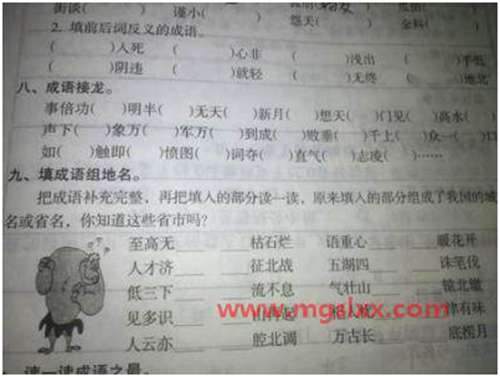 街谈( ) 谨小( ) 怨天( ) 金科( )
2. 填前后词反义的成语。
( )人死 ( )心非 ( )浅出 ( )手低
( )阴违 ( )就轻 ( )无终 ( )地北
八、成语接龙。
事倍功( )明半( )无天( )新月( )想天( )门见( )高水( )
声下( )象万( )军万( )到成( )败垂( )千上( )众一( )口
如( )触即( )愤图( )词夺( )直气( )志凌( )……
九、填成语组地名。
把成语补充完整，再把填入的部分读一读，原来填入的部分组成了我国的城
名或省名，你知道这些省市吗？
至高无____ ____枯石烂 语重心____ ____暖花开
人才济____ ____征北战 五湖四____ ____诛笔伐
低三下____ ____流不息 气壮山____ ____辕北辙
见多识____ ____津有味
人云亦____ ____腔北调 万古长____ ____底捞月
www.mgslxx.com
速一速成语之最。